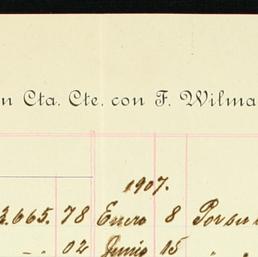 n Cta. Cte. con F. Wilma
1907.
3.665. 78 Enero 8 Por su
02 Junio 15 "